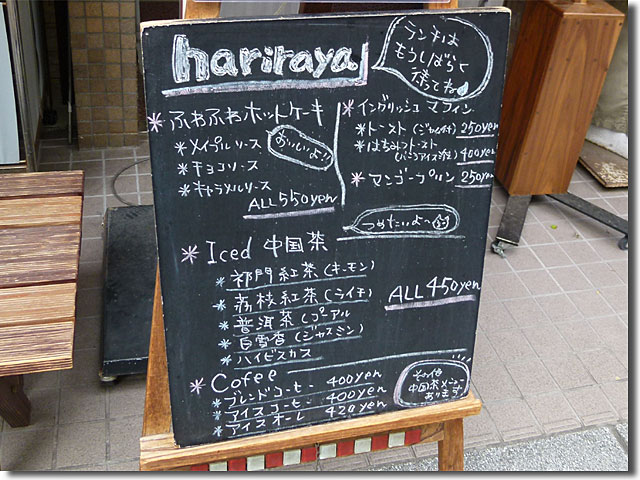 hariraya
ランチは
もうしばらく
待ってね
ふわふわホットケーキ
おいしいよ!
*メイプルソース
*チョコソース
*キャラメルソース
ALL 550yen
*イングリッシュマフィン
*トースト(ジャム付) 250yen
*はちみつトースト
(バニラアイス添え) 400yen
*マンゴープリン 250yen
つめたいよ〜
*Iced 中国茶
*祁門紅茶(キーモン)
*荔枝紅茶(ライチ)
*普洱茶(プーアル
*白雪香(ジャスミン)
*ハイビスカス
ALL 450yen
*Cofee
*ブレンドコーヒー 400yen
*アイスコーヒー 400yen
*アイスオーレ 420yen
その他
中国茶メニュー
あります